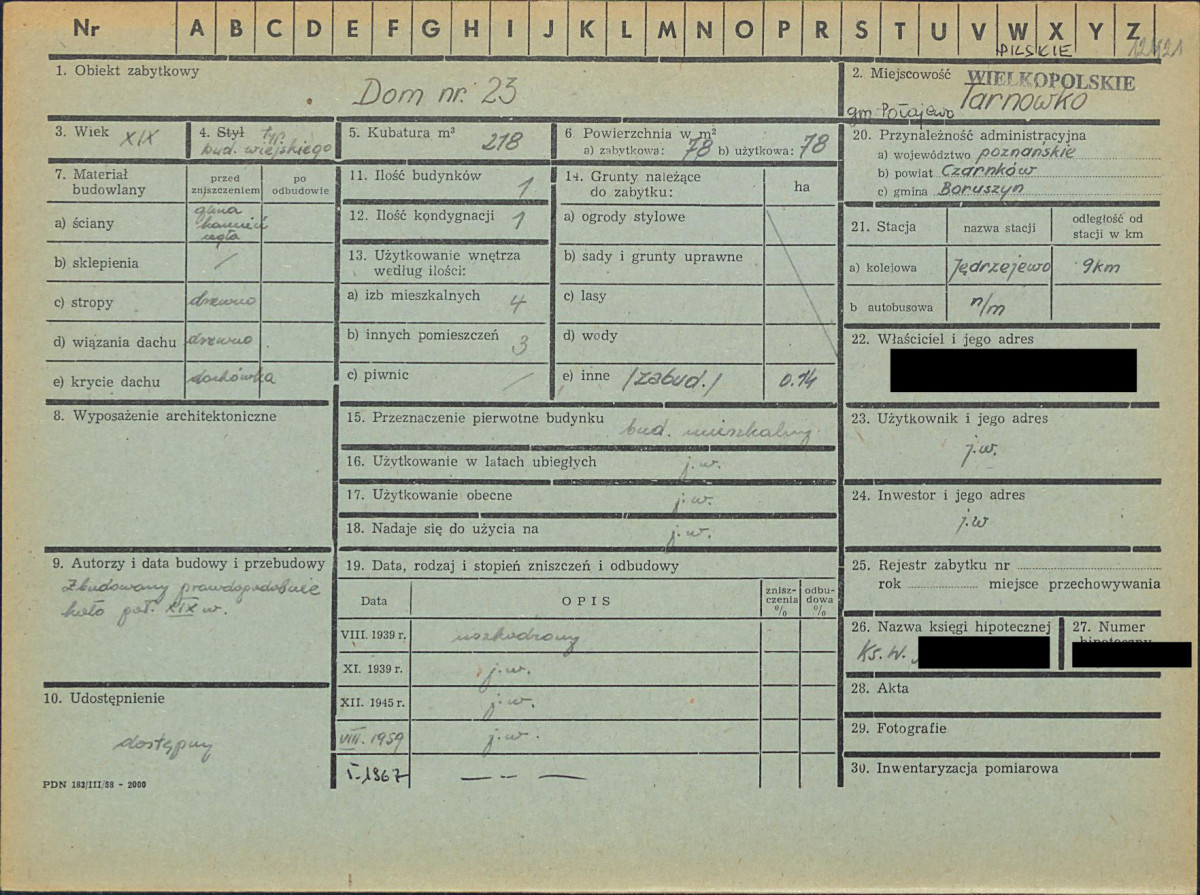 Nr A B C D E F G H I J K L M N O P R S T U V W X Y Z
PILSKIE
1. Obiekt zabytkowy
Dom nr. 23
2. Miejscowość WIELKOPOLSKIE
Tarnówko
gm Połajewo
3. Wiek XIX
4. Styl typ.
bud. wiejskiego
5. Kubatura m³ 218
6 Powierzchnia w m²
a) zabytkowa: 78 b) użytkowa: 78
7. Materiał budowlany
przed zniszczeniem
po odbudowie
a) ściany glina
kamień
cegła
b) sklepienia /
c) stropy drzewo
d) wiązania dachu drzewo
e) krycie dachu dachówka
8. Wyposażenie architektoniczne
9. Autorzy i data budowy i przebudowy
Zbudowany prawdopodobnie
koło poł. XIX w.
10. Udostępnienie
dostępny
PDN 183/III/58 - 2000
11. Ilość budynków 1
12. Ilość kondygnacji 1
13. Użytkowanie wnętrza
według ilości:
a) izb mieszkalnych 4
b) innych pomieszczeń 3
c) piwnic /
14. Grunty należące
do zabytku:
ha
a) ogrody stylowe
b) sady i grunty uprawne
c) lasy
d) wody
e) inne /zabud./ 0.14
15. Przeznaczenie pierwotne budynku bud. mieszkalny
16. Użytkowanie w latach ubiegłych j.w.
17. Użytkowanie obecne j.w.
18. Nadaje się do użycia na j.w.
19. Data, rodzaj i stopień zniszczeń i odbudowy
Data OPIS
znisz-
czenia
%
odbu-
dowa
%
VIII. 1939 r. uszkodzony
XI. 1939 r. j.w.
XII. 1945 r. j.w.
VIII. 1959 j.w.
I-1967 — -- —
20. Przynależność administracyjna
a) województwo poznańskie
b) powiat Czarnków
c) gmina Boruszyn
21. Stacja
nazwa stacji
odległość od
stacji w km
a) kolejowa Jędrzejewo 9km
b autobusowa n/m
22. Właściciel i jego adres
23. Użytkownik i jego adres
j.w.
24. Inwestor i jego adres
j.w
25. Rejestr zabytku nr
rok miejsce przechowywania
26. Nazwa księgi hipotecznej
Ks. W.
27. Numer
hipoteczny
28. Akta
29. Fotografie
30. Inwentaryzacja pomiarowa